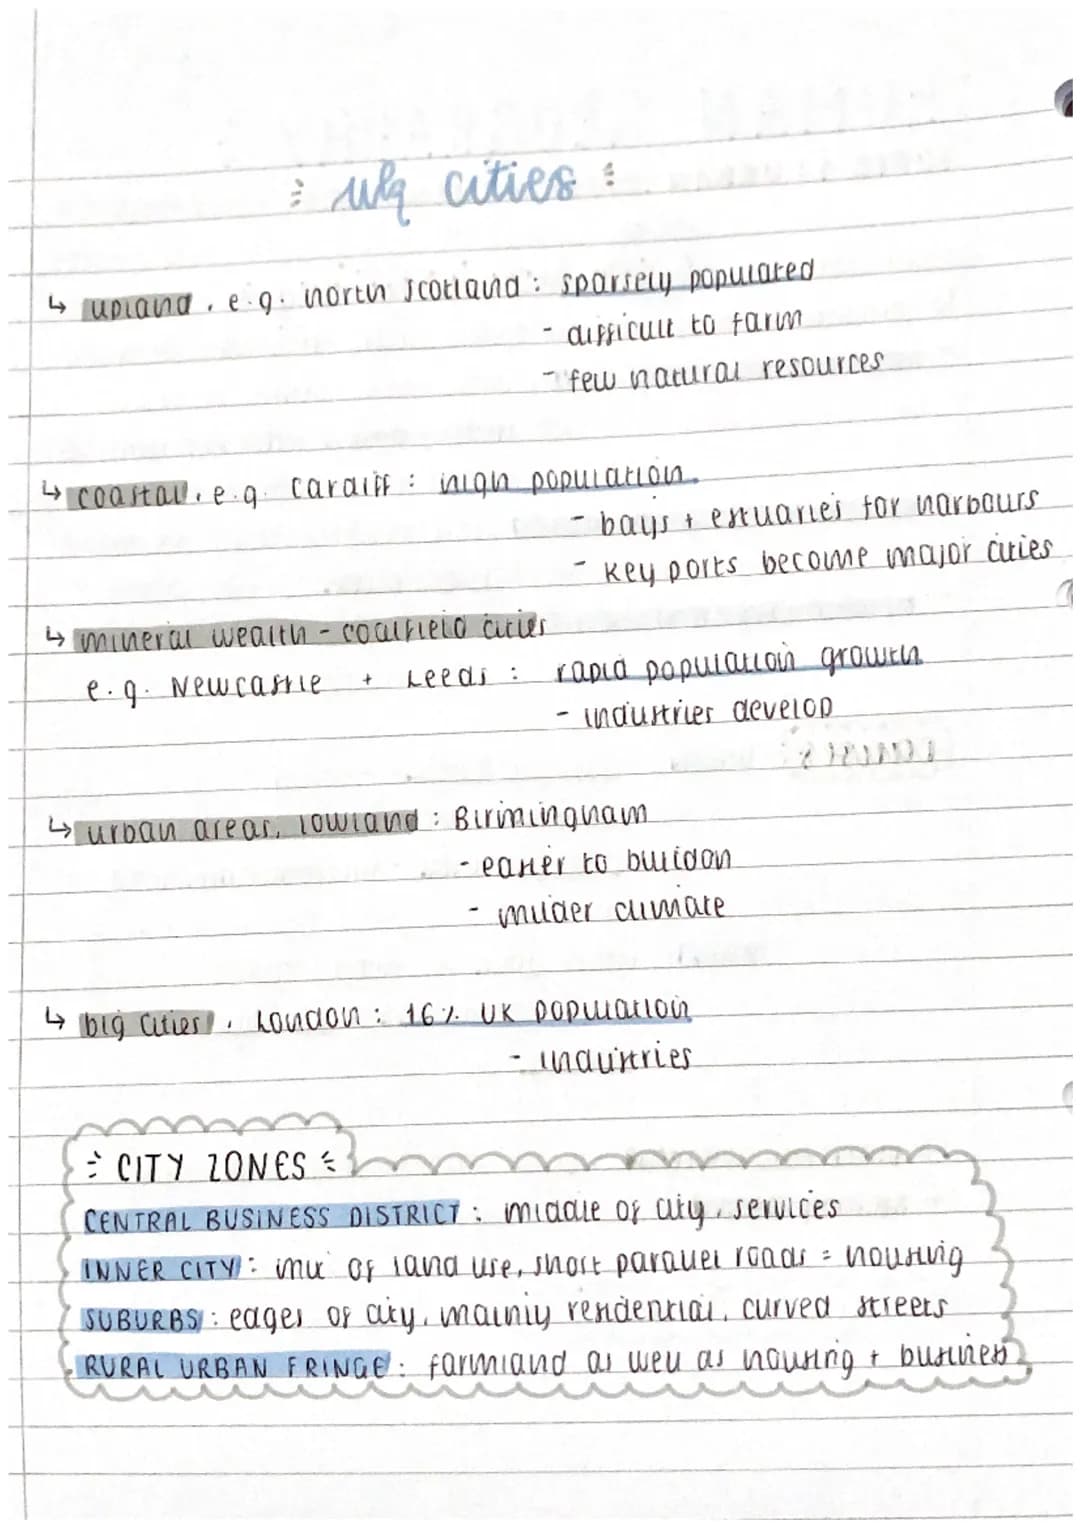 uk cities
↳ upland, e.g. north scotland : sparsely populated
- difficult to farm
- few natural resources
↳ coastal, e.g. cardiff : high population
- bays + estuaries for harbours
- key ports become major cities
↳ mineral wealth - coalfield cities
e.g. Newcastle + Leeds : rapid population growth
- industries develop
↳ urban areas, lowland : Birmingham
- easier to build on
- milder climate
↳ big cities, London : 16% UK population
- industries
CITY ZONES
CENTRAL BUSINESS DISTRICT : middle of city, services
INNER CITY : mix of land use, short parallel roads = housing
SUBURBS : edges of city, mainly residential, curved streets
RURAL URBAN FRINGE : farmland as well as housing + business